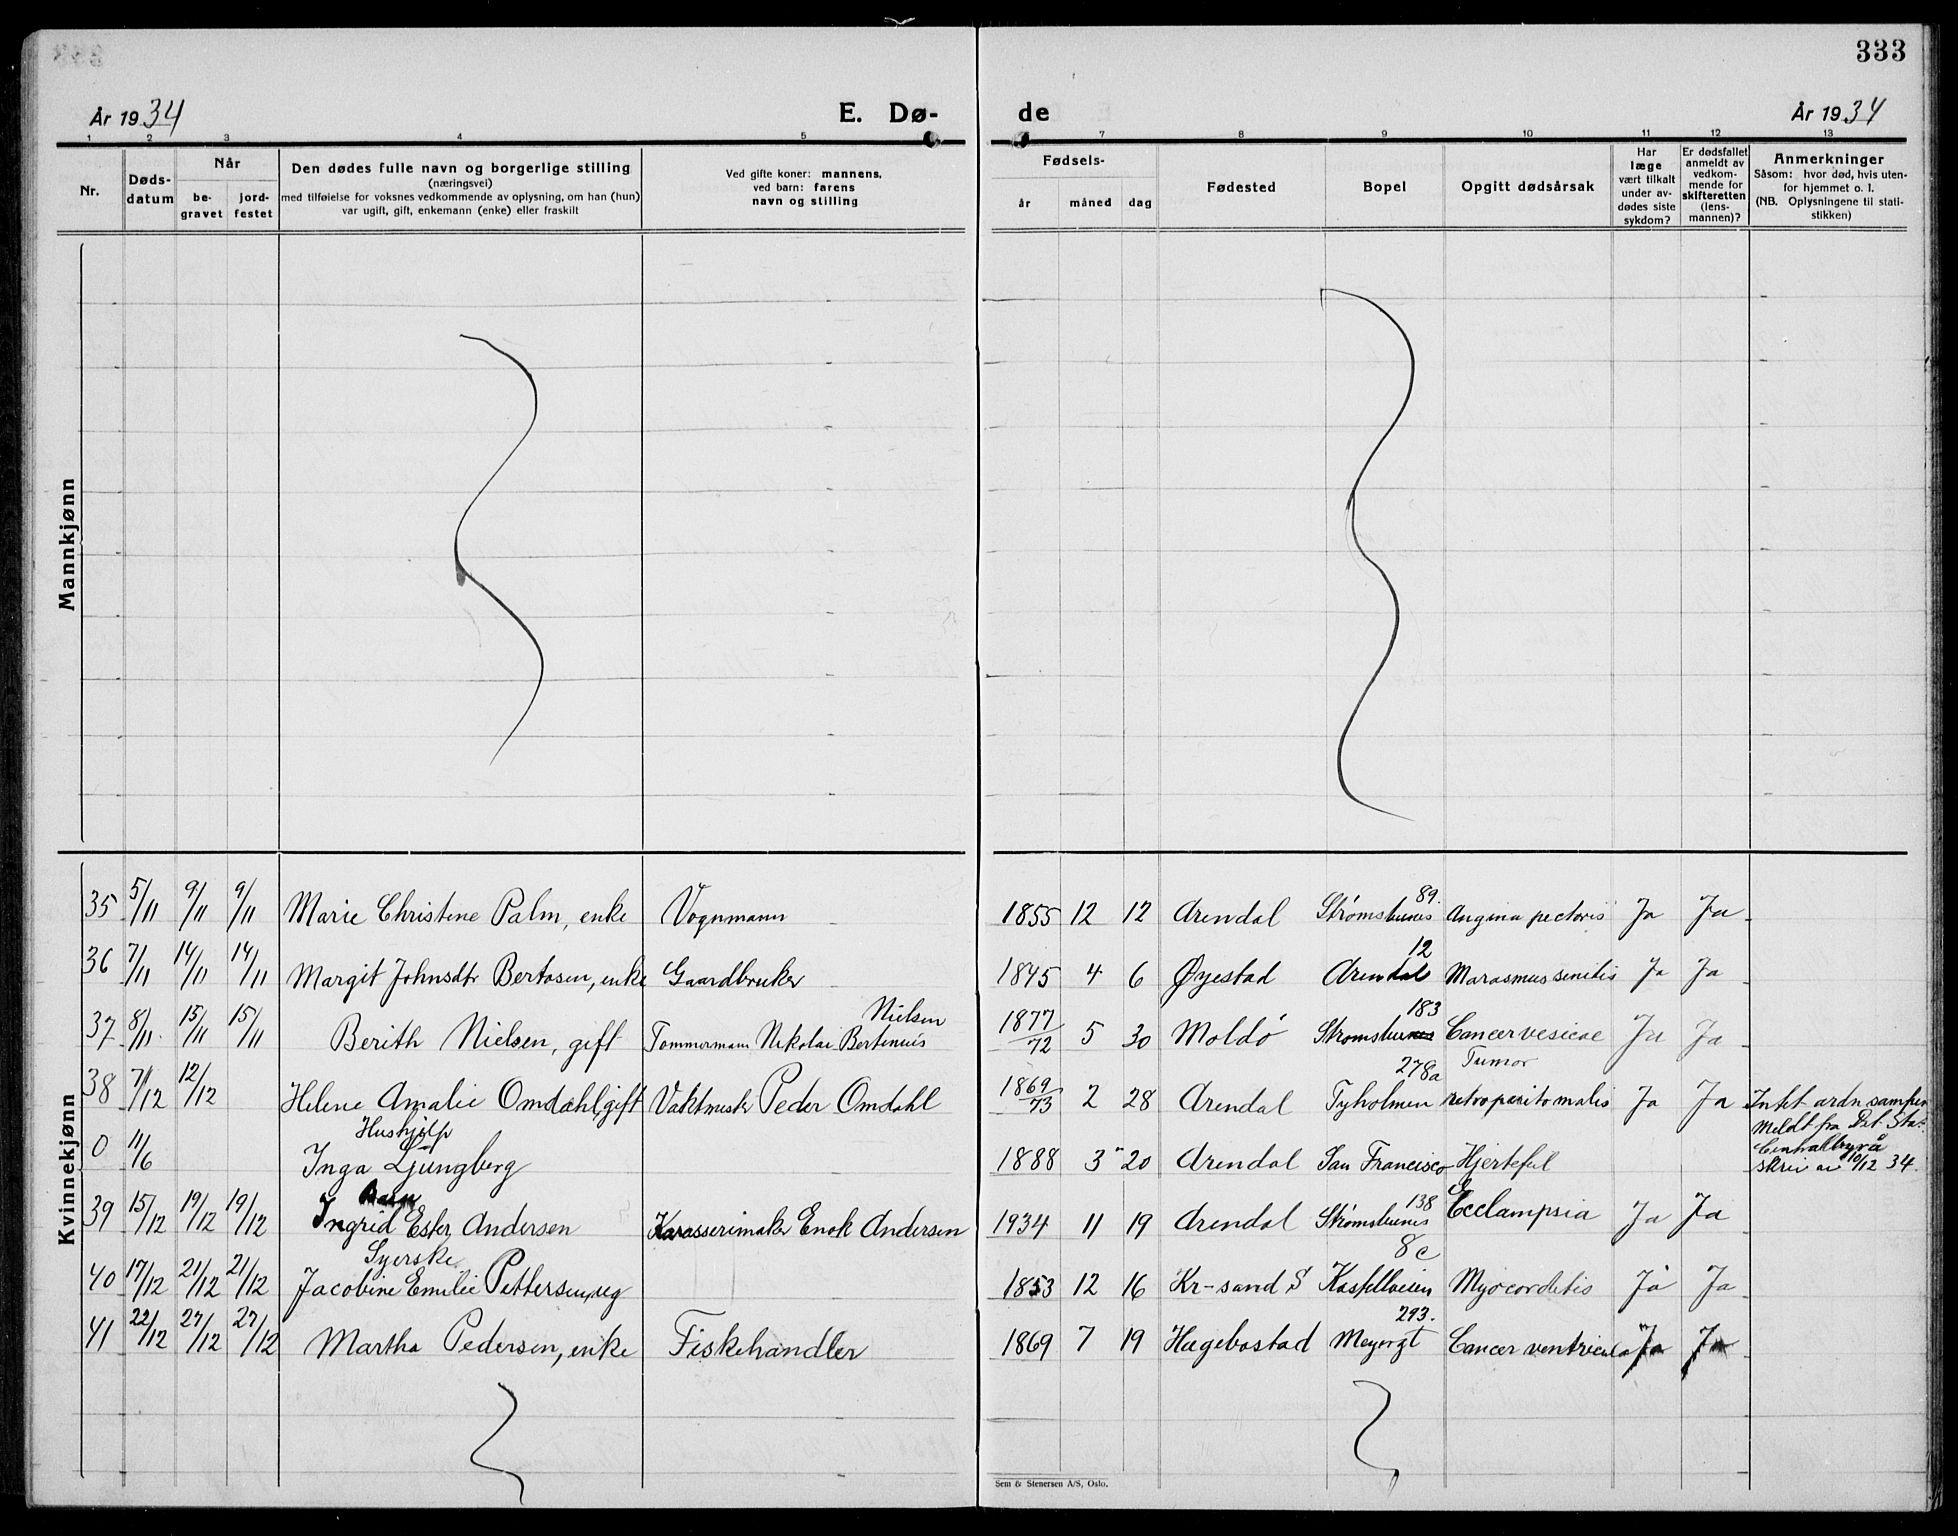 333
År 1934
E. Dø-
de
År 1934
1 2 3 4 5
7 8 9 10 11 12 13
Nr.
Døds-
datum
Når
be-
gravet
jord-
festet
Den dødes fulle navn og borgerlige stilling
(næringsvei)
med tilføielse for voksnes vedkommende av oplysning, om han (hun)
var ugift, gift, enkemann (enke) eller fraskilt
Ved gifte koner: mannens,
ved barn: farens
navn og stilling
Fødsels-
år måned dag
Fødested
Bopel
Opgitt dødsårsak
Har
læge
vært tilkalt
under av-
dødes siste
sykdom?
Er dødsfallet
anmeldt av
vedkom-
mende for
skifteretten
(lens-
mannen)?
Anmerkninger
Såsom: hvor død, hvis uten-
for hjemmet o. l.
(NB. Oplysningene til stati-
stikken)
Mannkjønn
Kvinnekjønn
35 5/11 9/11 9/11 Marie Christene Palm, enke Vognmann 1855 12 12 Arendal Strømsbunes 89. Angina pectoris Ja Ja
36 7/11 14/11 14/11 Margit Johnsdtr Bertosen, enke Gaardbruker 1845 4 6 Øyestad Arendal 12 Marasmus senilis Ja Ja
37 8/11 15/11 15/11 Berith Nielsen, gift Tømmermann Nikolai Bertinius Nielsen 1877/72 5 30 Moldö Strømsbunes 183 Cancer vesicae Ja Ja
38 7/12 12/12 Helene Amalie Omdahl, gift Vaktmester Peder Omdahl 1869/73 2 28 Arendal Tyholmen 278a Tumor retroperitonealis Ja Ja Intet ordn
0 11/6 Hushjelp
Inga Ljungberg 1888 3 20 Arendal San Francisco Hjertefeil Meldt fra Det Sta.
Centralbyrå
skriv av 10/12 34.
39 15/12 19/12 19/12 Barn
Ingrid Ester Andersen Karasserimaker Enok Andersen 1934 11 19 Arendal Strømsbunes 138 Ecclampsia Ja Ja
40 17/12 21/12 21/12 Syerske
Jacobine Emilie Pettersen, ug 1853 12 16 Kr-sand S Kastellveien 8c Myocorditis Ja Ja
41 22/12 27/12 27/12 Martha Pedersen, enke Fiskehandler 1869 7 19 Hægebostad Meyergt 293. Cancer ventriculi Ja Ja
Sem & Stenersen A/S, Oslo.